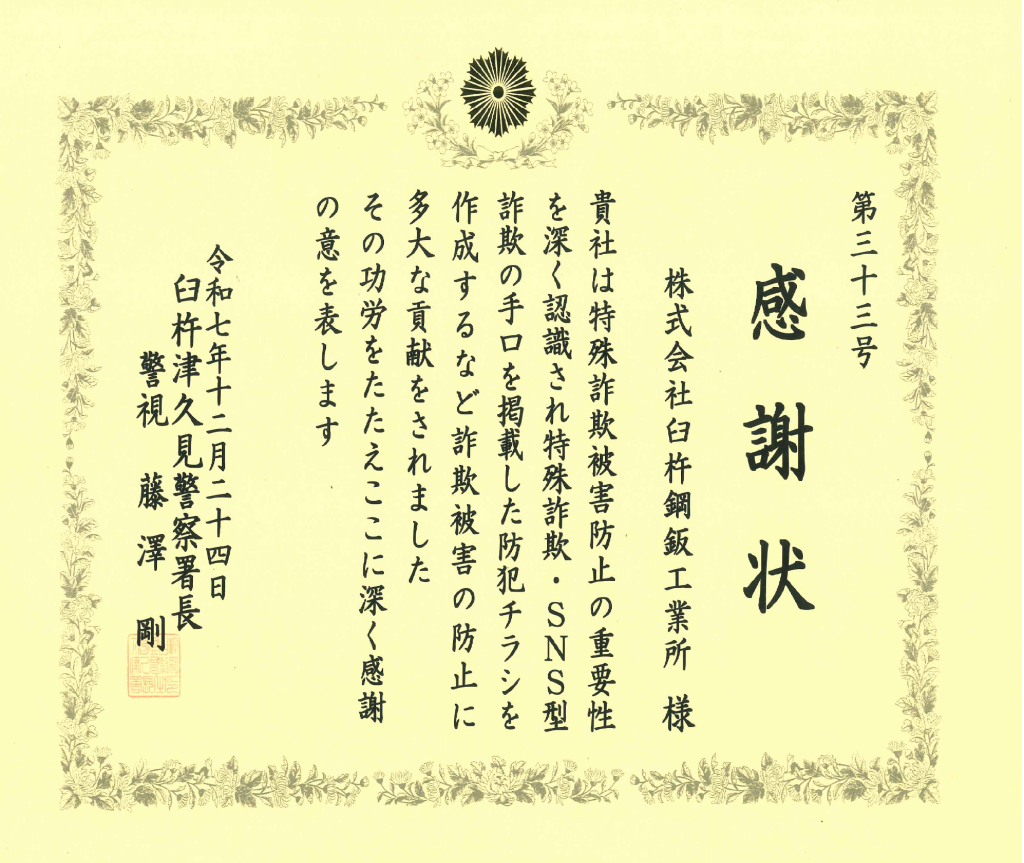 第三十三号
感謝状
株式会社臼杵鋼鈑工業所 様
貴社は特殊詐欺被害防止の重要性
を深く認識され特殊詐欺・SNS型
詐欺の手口を掲載した防犯チラシを
作成するなど詐欺被害の防止に
多大な貢献をされました
その功労をたたえここに深く感謝
の意を表します
令和七年十二月二十四日
臼杵津久見警察署長
警視 藤澤 剛